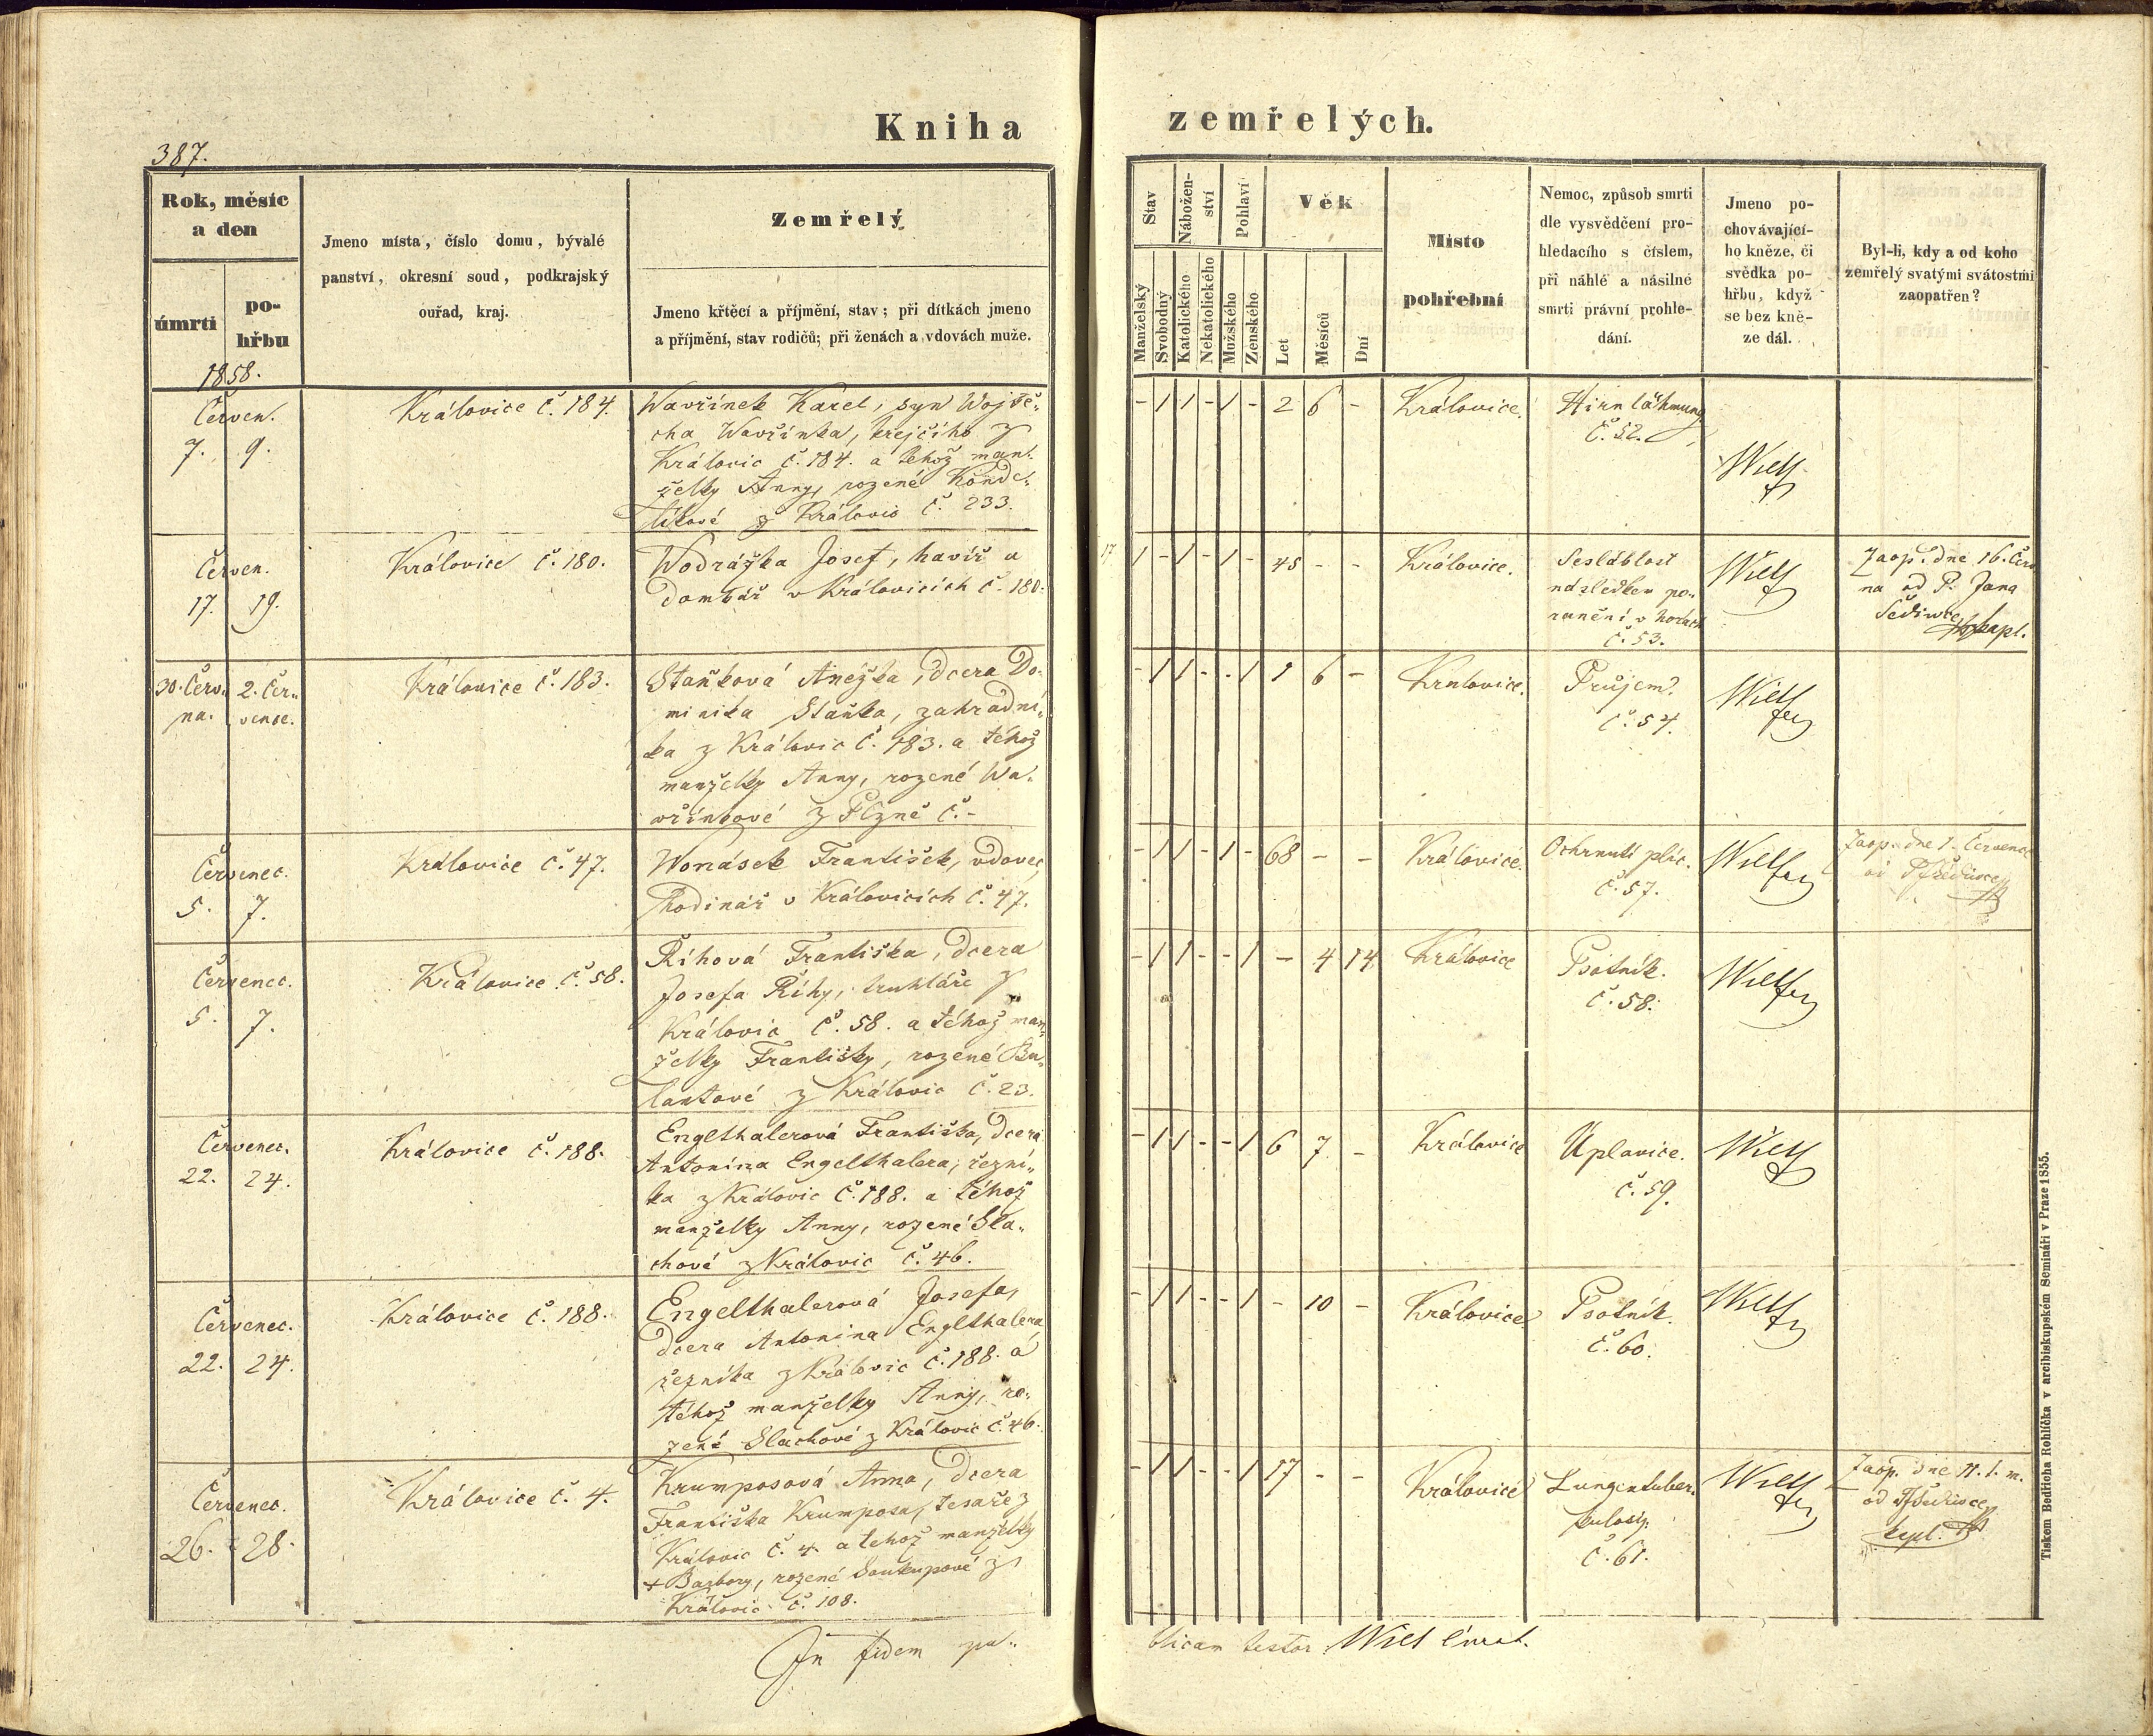 Kniha
387.
Rok, měsíc
a den
úmrtí
po-
hřbu
Jmeno místa, číslo domu, bývalé
panství, okresní soud, podkrajský
ouřad, kraj.
Zemřelý
Jmeno křtěcí a příjmění, stav; při dítkách jmeno
a příjmění, stav rodičů; při ženách a vdovách muže.
1858.
Červen.
7. 9.
Královice č. 184.
Wavřínek Karel, syn Wojtě-
cha Wavřínka, krejčího z
Královic č. 184. a téhož man-
želky Anny, rozené Konde-
líkové z Královic č. 233.
Červen.
17. 19.
Královice č. 180.
Wodrážka Josef, havíř a
domkář v Královicích č. 180.
30. Červ-
na.
2. Čer-
vence.
Královice č. 183.
Staňková Anežka, dcera Do-
minika Staňka, zahradní-
ka z Královic č. 183. a téhož
manželky Anny, rozené Wa-
vřínkové z Plzně č. -
Červenec.
5. 7.
Královice č. 47.
Wonásek František, vdovec,
Hodinář v Královicích č. 47.
Červenec.
5. 7.
Královice č. 58.
Říhová Františka, dcera
Josefa Říhy, truhláře z
Královic č. 58. a téhož man-
želky Františky, rozené Bu-
lantové z Královic č. 23.
Červenec.
22. 24.
Královice č. 188.
Englthalerová Františka, dcera
Antonína Engelthalera, řezní-
ka z Královic č. 188. a téhož
manželky Anny, rozené Sla-
chové z Královic č. 46.
Červenec.
22. 24.
Královice č. 188.
Engelthalerová Josefa,
dcera Antonina Englthalera
řezníka z Královic č. 188. a
téhož manželky Anny, ro-
zené Slachové z Královic č. 46.
Červenec.
26. 28.
Královice č. 4.
Krumposová Anna, dcera
Františka Krumposa, tesaře z
Královic č. 4. a téhož manželky
+ Barbory, rozené Soukupové z
Královic č. 108.
In fidem pu-
zemřelých.
Stav
Nábožen-
ství
Pohlaví
Věk
Manželský
Svobodný
Katolického
Nekatolického
Mužského
Ženského
Let
Měsíců
Dní
Místo
pohřební
Nemoc, způsob smrti
dle vysvědčení pro-
hledacího s číslem,
při náhlé a násilné
smrti právní prohle-
dání.
Jmeno po-
chovávající-
ho kněze, či
svědka po-
hřbu, když
se bez kně-
ze dál.
Byl-li, kdy a od koho
zemřelý svatými svátostmi
zaopatřen?
- 1 1 - 1 - 2 6 -
Královice.
Hirnlähmung
č. 52.
Wilt
17
1 - 1 - 1 - 45 - -
Královice.
Sesláblost
následkem po-
ranění v horách
č. 53.
Wilt
Zaop. dne 16. Červ-
na od P. Jana
Šediwce, kapl.
- 1 1 - - 1 1 6 -
Královice.
Průjem.
č. 54.
Wilt
- 1 1 - 1 - 68 - -
Královice.
Ochrnutí plic.
č. 57.
Wilt
Zaop. dne 1. Července
od P. Šediwce
- 1 1 - - 1 - 4 14
Královice
Psotník.
č. 58.
Wilt
- 1 1 - - 1 6 7 -
Královice
Úplavice.
č. 59.
Wilt
- 1 1 - - 1 - 10 -
Královice
Psotník.
č. 60.
Wilt
- 1 1 - - 1 17 - -
Královice
Lungentuber-
kulosis.
č. 61.
Wilt
Zaop. dne 11. t. m.
od P. Šediwce
kapl.
blicam testor: Wilt
Tiskem Bedřicha Rohlíčka v arcibiskupském Semináři v Praze 1855.